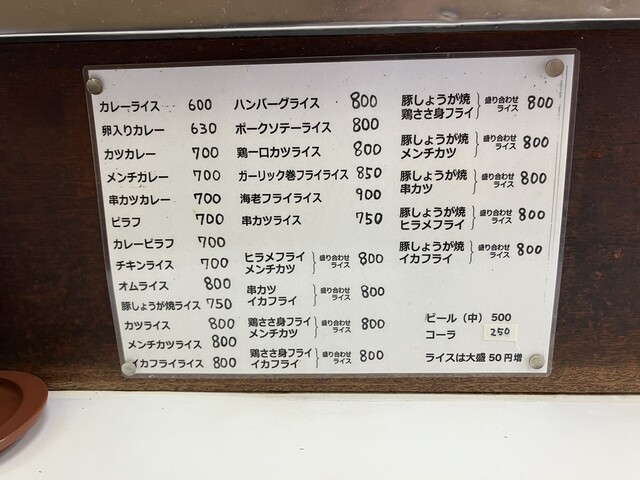 カレーライス 600
卵入りカレー 630
カツカレー 700
メンチカレー 700
串カツカレー 700
ピラフ 700
カレーピラフ 700
チキンライス 700
オムライス 800
豚しょうが焼ライス 750
カツライス 800
メンチカツライス 800
イカフライライス 800
ハンバーグライス 800
ポークソテーライス 800
鶏一口カツライス 800
ガーリック巻フライライス 850
海老フライライス 900
串カツライス 750
ヒラメフライ
メンチカツ 盛り合わせライス 800
串カツ
イカフライ 盛り合わせライス 800
鶏ささ身フライ
メンチカツ 盛り合わせライス 800
鶏ささ身フライ
イカフライ 盛り合わせライス 800
豚しょうが焼
鶏ささ身フライ 盛り合わせライス 800
豚しょうが焼
メンチカツ 盛り合わせライス 800
豚しょうが焼
串カツ 盛り合わせライス 800
豚しょうが焼
ヒラメフライ 盛り合わせライス 800
豚しょうが焼
イカフライ 盛り合わせライス 800
ビール（中）500
コーラ 250
ライスは大盛50円増